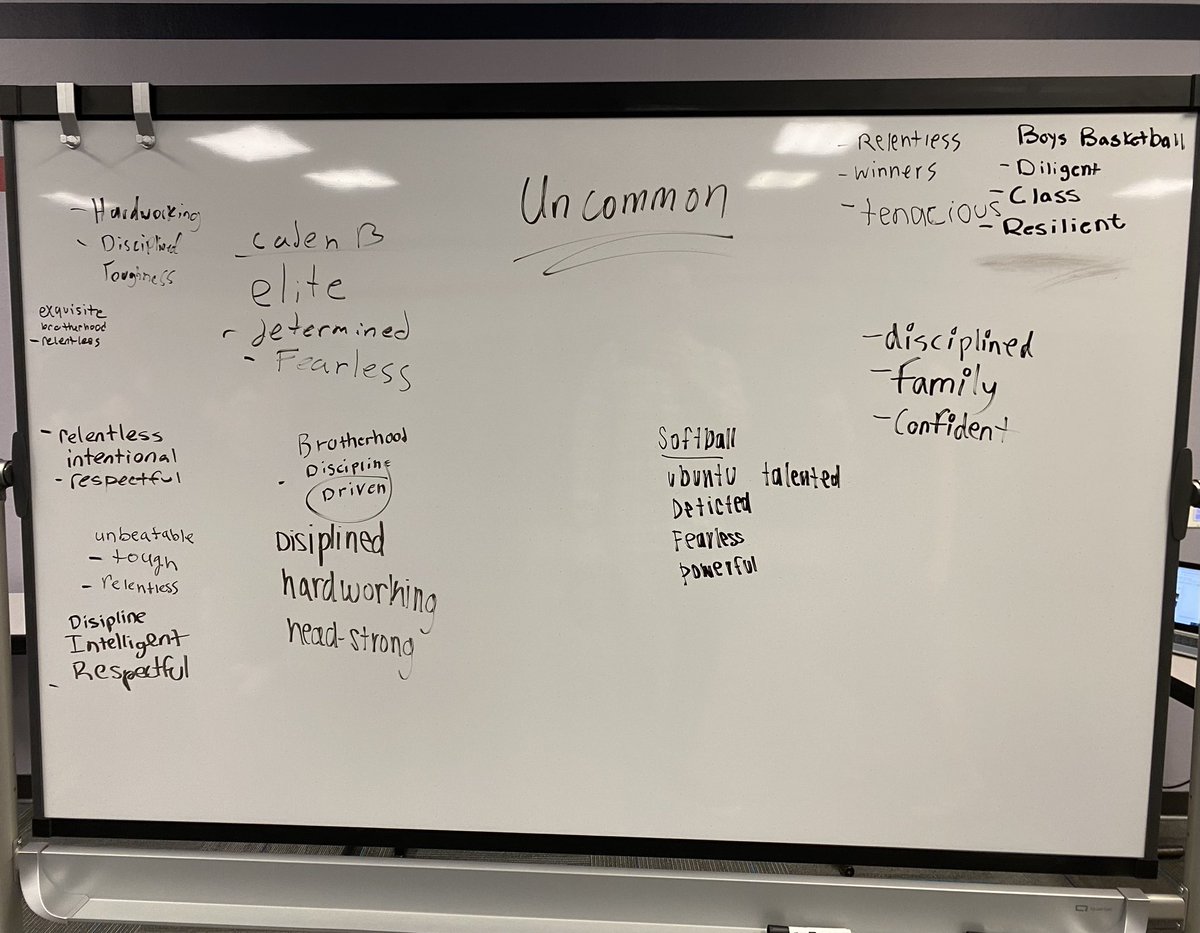 Uncommon
- Hardworking
- Disciplined
Toughness
exquisite
brotherhood
- relentless
- relentless
intentional
- respectful
unbeatable
- tough
- relentless
Disipline
Intelligent
- Respectful
Caden B
elite
- determined
- Fearless
Brotherhood
- Discipline
Driven
Disiplined
hardworking
head-strong
Softball
ubuntu talented
Deticted
Fearless
powerful
- Relentless
- winners
- tenacious
Boys Basketball
- Diligent
- Class
- Resilient
- disciplined
- family
- Confident